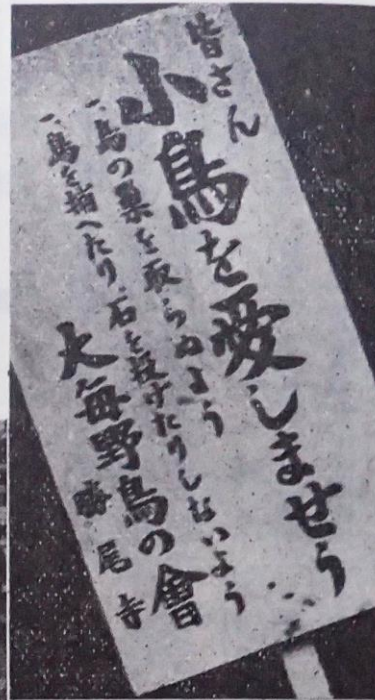 皆さん
小鳥を愛しませう
一、鳥の巣を取らぬよう
一、鳥を捕へたり、石を投げたりしないよう
大毎野鳥の會
勝尾寺